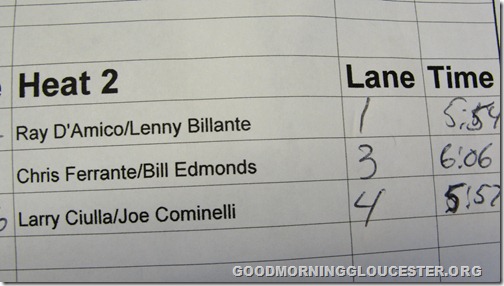 Heat 2 Lane Time
Ray D'Amico/Lenny Billante 1 5:54
Chris Ferrante/Bill Edmonds 3 6:06
Larry Ciulla/Joe Cominelli 4 5:57
GOODMORNINGGLOUCESTER.ORG